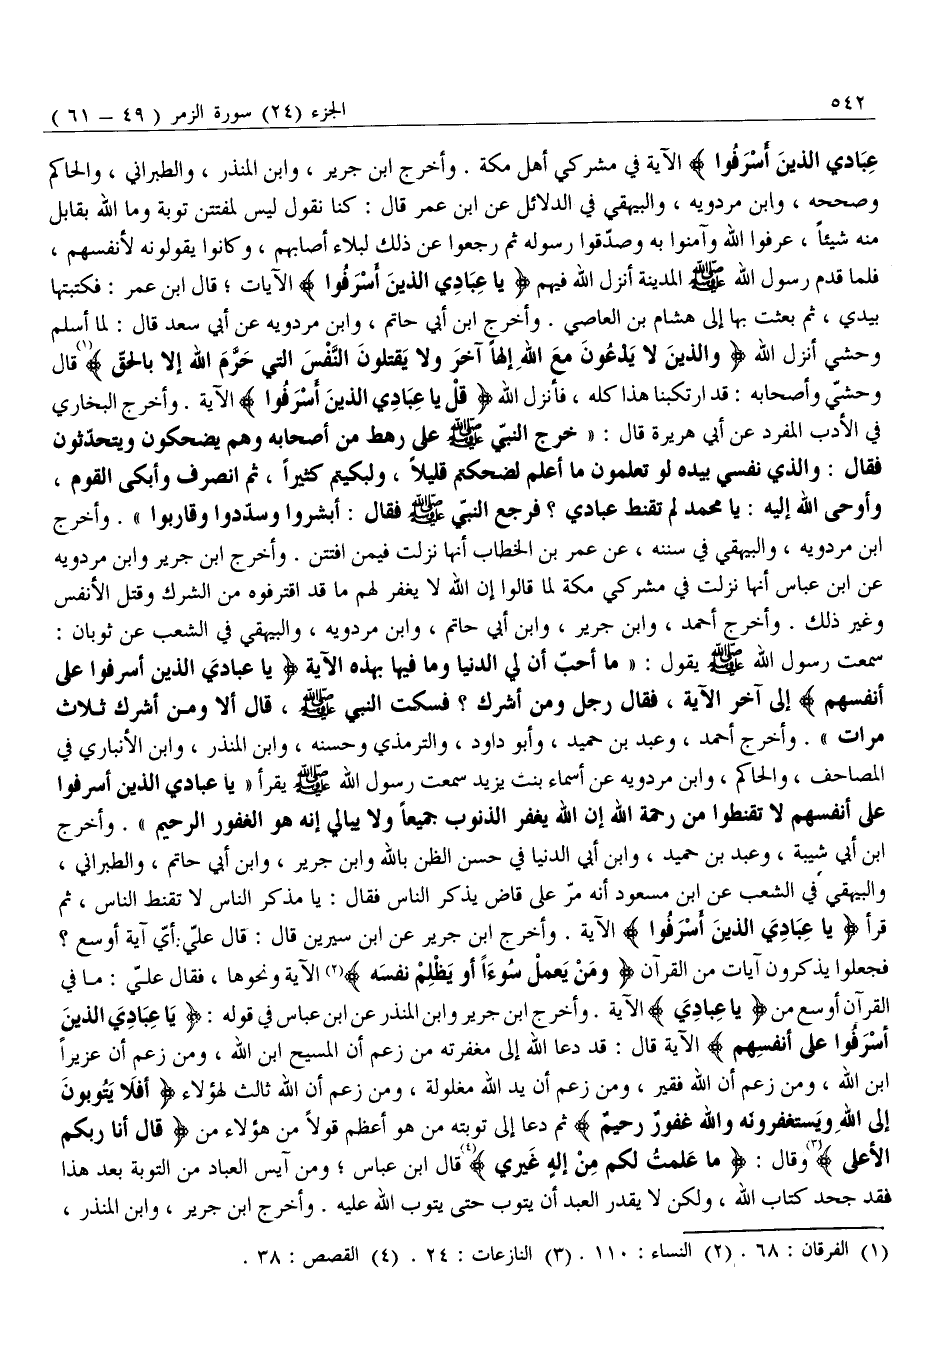 ٥٤٢
الجزء (٢٤) سورة الزمر ( ٤٩ – ٦١ )
عِبَادي الذينَ أَسْرَفُوا ﴾ الآية في مشركي أهل مكة . وأخرج ابن جرير ، وابن المنذر ، والطبراني ، والحاكم
وصححه ، وابن مردويه ، والبيهقي في الدلائل عن ابن عمر قال : كنا نقول ليس لمفتتن توبة وما الله بقابل
منه شيئاً ، عرفوا الله وآمنوا به وصدّقوا رسوله ثم رجعوا عن ذلك لبلاء أصابهم ، وكانوا يقولونه لأنفسهم ،
فلما قدم رسول الله ﷺ المدينة أنزل الله فيهم ﴿ يا عِبَادِي الذينَ أَسْرَفُوا ﴾ الآيات ؛ قال ابن عمر : فكتبتها
بيدي ، ثم بعثت بها إلى هشام بن العاصي . وأخرج ابن أبي حاتم ، وابن مردويه عن أبي سعد قال : لما أسلم
وحشي أنزل الله ﴿ والذينَ لا يَدْعُونَ معَ اللهِ إلهاً آخرَ ولا يَقتلونَ النَّفْسَ التي حَرَّمَ الله إلا بالحقّ ﴾(١) قال
وحشيّ وأصحابه : قد ارتكبنا هذا كله ، فأنزل الله ﴿ قلْ يا عِبَادِي الذينَ أَسْرَفُوا ﴾ الآية . وأخرج البخاري
في الأدب المفرد عن أبي هريرة قال : « خرج النبيّ ﷺ على رهط من أصحابه وهم يضحكون ويتحدّثون
فقال : والذي نفسي بيده لو تعلمون ما أعلم لضحكتم قليلاً ، ولبكيتم كثيراً ، ثم انصرف وأبكى القوم ،
وأوحى الله إليه : يا محمد لم تقنط عبادي ؟ فرجع النبيّ ﷺ فقال : أبشروا وسدّدوا وقاربوا » . وأخرج
ابن مردويه ، والبيهقي في سننه ، عن عمر بن الخطاب أنها نزلت فيمن افتتن . وأخرج ابن جرير وابن مردويه
عن ابن عباس أنها نزلت في مشركي مكة لما قالوا إن الله لا يغفر لهم ما قد اقترفوه من الشرك وقتل الأنفس
وغير ذلك . وأخرج أحمد ، وابن جرير ، وابن أبي حاتم ، وابن مردويه ، والبيهقي في الشعب عن ثوبان :
سمعت رسول الله ﷺ يقول : « ما أحبّ أن لي الدنيا وما فيها بهذه الآية ﴿ يا عباديَ الذين أسرفوا على
أنفسهم ﴾ إلى آخر الآية ، فقال رجل ومن أشرك ؟ فسكت النبي ﷺ ، قال ألا ومن أشرك ثلاث
مرات » . وأخرج أحمد ، وعبد بن حميد ، وأبو داود ، والترمذي وحسنه ، وابن المنذر ، وابن الأنباري في
المصاحف ، والحاكم ، وابن مردويه عن أسماء بنت يزيد سمعت رسول الله ﷺ يقرأ « يا عبادي الذين أسرفوا
على أنفسهم لا تقنطوا من رحمة الله إن الله يغفر الذنوب جميعاً ولا يبالي إنه هو الغفور الرحيم » . وأخرج
ابن أبي شيبة ، وعبد بن حميد ، وابن أبي الدنيا في حسن الظن بالله وابن جرير ، وابن أبي حاتم ، والطبراني ،
والبيهقي في الشعب عن ابن مسعود أنه مرّ على قاض يذكر الناس فقال : يا مذكر الناس لا تقنط الناس ، ثم
قرأ ﴿ يا عِبَادِيَ الذينَ أَسْرَفُوا ﴾ الآية . وأخرج ابن جرير عن ابن سيرين قال : قال عليّ : أيّ آية أوسع ؟
فجعلوا يذكرون آيات من القرآن ﴿ ومَنْ يَعملْ سُوءَاً أو يَظْلِمْ نفسَه ﴾(٢) الآية ونحوها ، فقال عليّ : ما في
القرآن أوسع من ﴿ يا عِبادِيَ ﴾ الآية . وأخرج ابن جرير وابن المنذر عن ابن عباس في قوله : ﴿ يَا عِبَادِيَ الذينَ
أَسْرَفُوا على أنفسِهم ﴾ الآية قال : قد دعا الله إلى مغفرته من زعم أن المسيح ابن الله ، ومن زعم أن عزيراً
ابن الله ، ومن زعم أن الله فقير ، ومن زعم أن يد الله مغلولة ، ومن زعم أن الله ثالث لهؤلاء ﴿ أفلَا يَتُوبونَ
إلى اللهِ ويَستغفرونَه والله غفورٌ رحيمٌ ﴾ ثم دعا إلى توبته من هو أعظم قولاً من هؤلاء من ﴿ قال أنا ربكم
الأعلى ﴾(٣) وقال : ﴿ ما عَلمتُ لكم مِنْ إلهٍ غَيري ﴾(٤) قال ابن عباس ؛ ومن آيس العباد من التوبة بعد هذا
فقد جحد كتاب الله ، ولكن لا يقدر العبد أن يتوب حتى يتوب الله عليه . وأخرج ابن جرير ، وابن المنذر ،
(١) الفرقان : ٦٨ . (٢) النساء : ١١٠ . (٣) النازعات : ٢٤ . (٤) القصص : ٣٨ .